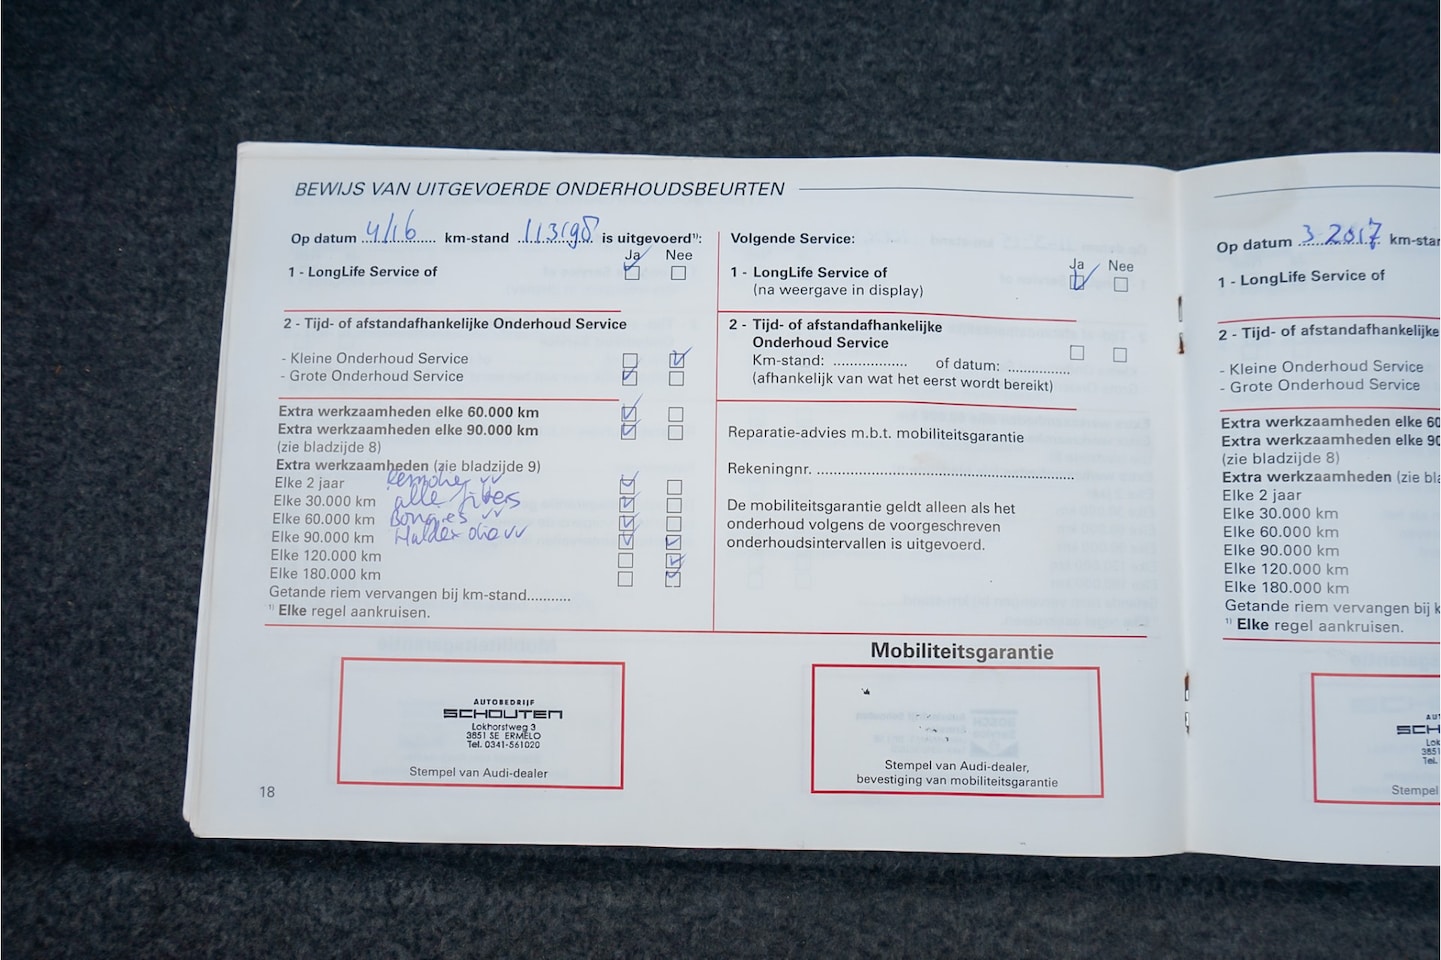 BEWIJS VAN UITGEVOERDE ONDERHOUDSBEURTEN
Op datum 4/16 km-stand 113198 is uitgevoerd¹⁾:
Ja Nee
1 - LongLife Service of
2 - Tijd- of afstandafhankelijke Onderhoud Service
- Kleine Onderhoud Service
- Grote Onderhoud Service
Extra werkzaamheden elke 60.000 km
Extra werkzaamheden elke 90.000 km
(zie bladzijde 8)
Extra werkzaamheden (zie bladzijde 9)
Elke 2 jaar
Elke 30.000 km alle filters
Elke 60.000 km Bougies vv
Elke 90.000 km Haldex olie vv
Elke 120.000 km
Elke 180.000 km
Getande riem vervangen bij km-stand...........
¹⁾ Elke regel aankruisen.
Volgende Service:
Ja Nee
1 - LongLife Service of
(na weergave in display)
2 - Tijd- of afstandafhankelijke
Onderhoud Service
Km-stand: .................. of datum: ...............
(afhankelijk van wat het eerst wordt bereikt)
Reparatie-advies m.b.t. mobiliteitsgarantie
Rekeningnr. ..............................................................
De mobiliteitsgarantie geldt alleen als het
onderhoud volgens de voorgeschreven
onderhoudsintervallen is uitgevoerd.
AUTOBEDRIJF
SCHOUTEN
Lokhorstweg 3
3851 SE ERMELO
Tel. 0341-561020
Stempel van Audi-dealer
Mobiliteitsgarantie
Stempel van Audi-dealer,
bevestiging van mobiliteitsgarantie
18
Op datum 3-2017 km-star
1 - LongLife Service of
2 - Tijd- of afstandafhankelijke
- Kleine Onderhoud Service
- Grote Onderhoud Service
Extra werkzaamheden elke 60
Extra werkzaamheden elke 90
(zie bladzijde 8)
Extra werkzaamheden (zie bla
Elke 2 jaar
Elke 30.000 km
Elke 60.000 km
Elke 90.000 km
Elke 120.000 km
Elke 180.000 km
Getande riem vervangen bij k
¹⁾ Elke regel aankruisen.
AU
SCH
Lok
3851
Tel.
Stempel